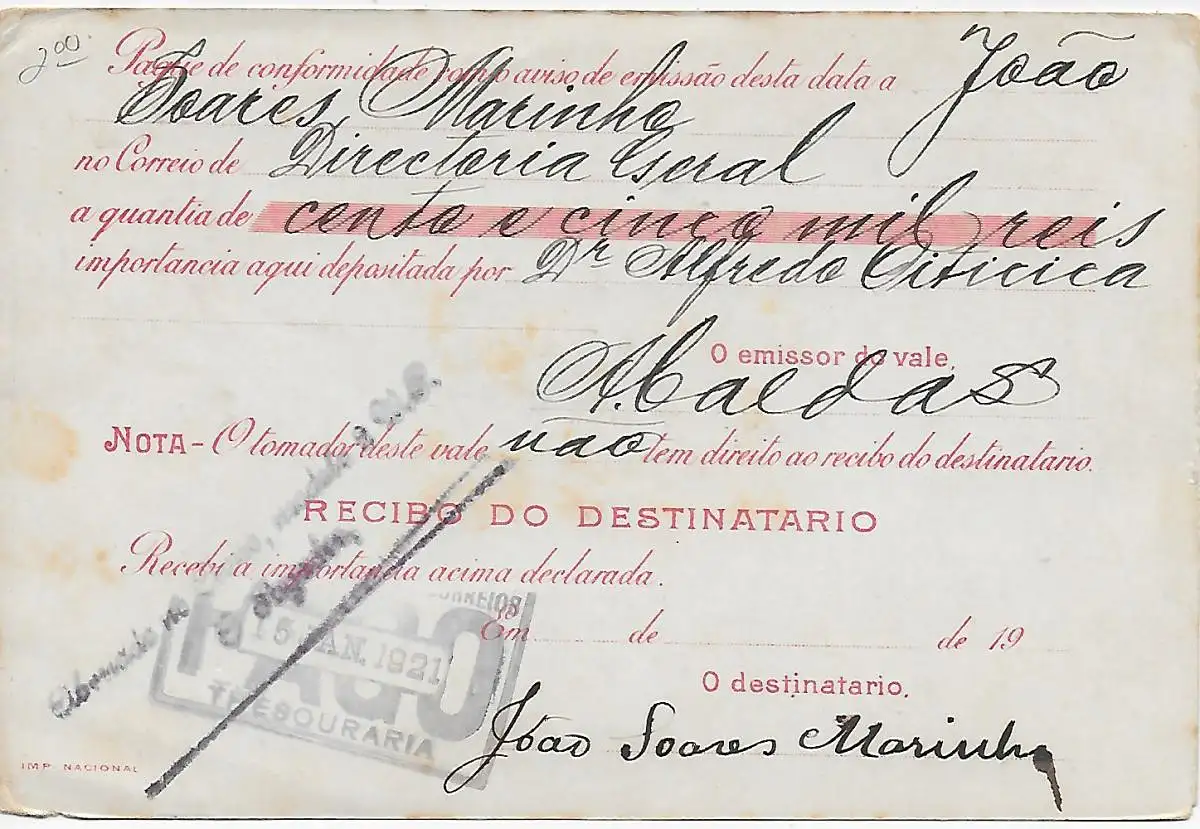 200
Pague de conformidade com o aviso de emissão desta data a João
Soares Marinho
no Correio de Directoria Geral
a quantia de cento e cinco mil reis
importancia aqui depositada por Dr Alfredo Oiticica
O emissor do vale,
A. Caldas
NOTA - O tomador deste vale não tem direito ao recibo do destinatario.
RECIBO DO DESTINATARIO
Recebi a importancia acima declarada.
CORREIOS
PAGO
15 JAN. 1921
THESOURARIA
Em de de 19
O destinatario,
João Soares Marinho
IMP. NACIONAL